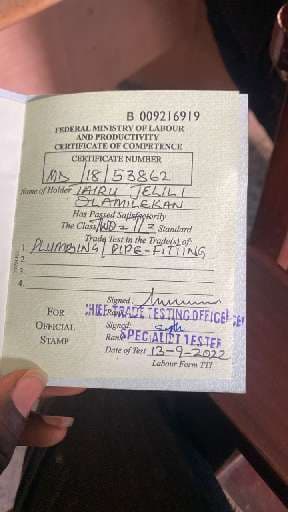 B 009216919
FEDERAL MINISTRY OF LABOUR
AND PRODUCTIVITY
CERTIFICATE OF COMPETENCE
CERTIFICATE NUMBER
18 53862
Name of Holder TAIRU JELILI
OLAMILEKAN
Has Passed Satisfactorily
The Class TWO = II = Standard
Trade Test in the Trade(s) of:
1 PLUMBING / PIPE-FITTING
2.
3.
4.
Signed
FOR
CHIEF TRADE TESTING OFFICER
OFFICIAL
Signed:
STAMP
Rank SPECIALIST TESTER
Date of Test 13-9-2022
Labour Form TTI